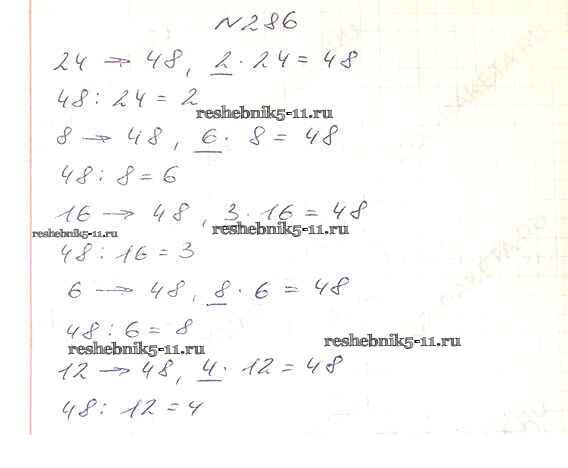 №286
24 → 48, 2 · 24 = 48
48 : 24 = 2
reshebnik5-11.ru
8 → 48, 6 · 8 = 48
48 : 8 = 6
16 → 48, 3 · 16 = 48
reshebnik5-11.ru
reshebnik5-11.ru
48 : 16 = 3
6 → 48, 8 · 6 = 48
48 : 6 = 8
reshebnik5-11.ru
reshebnik5-11.ru
12 → 48, 4 · 12 = 48
48 : 12 = 4